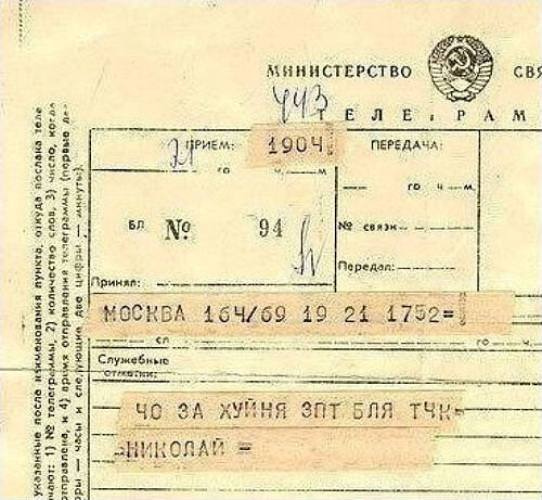 МИНИСТЕРСТВО СВЯ
443
ТЕЛЕГРАМ
21 ПРИЕМ: 1904. ПЕРЕДАЧА:
го ч. м. го ч. м.
БЛ № 94 № связи
Принял: Передал:
МОСКВА 164/69 19 21 1752=
сл. го ч.
Служебные
отметки:
ЧО ЗА ХУЙНЯ ЗПТ БЛЯ ТЧК=
=НИКОЛАЙ =
указанные после наименования пункта, откуда послана теле
чают: 1) № телеграммы, 2) количество слов, 3) число, когда
отправлена, и 4) время отправления телеграммы (первые две
фры — часы и следующие две цифры — минуты).